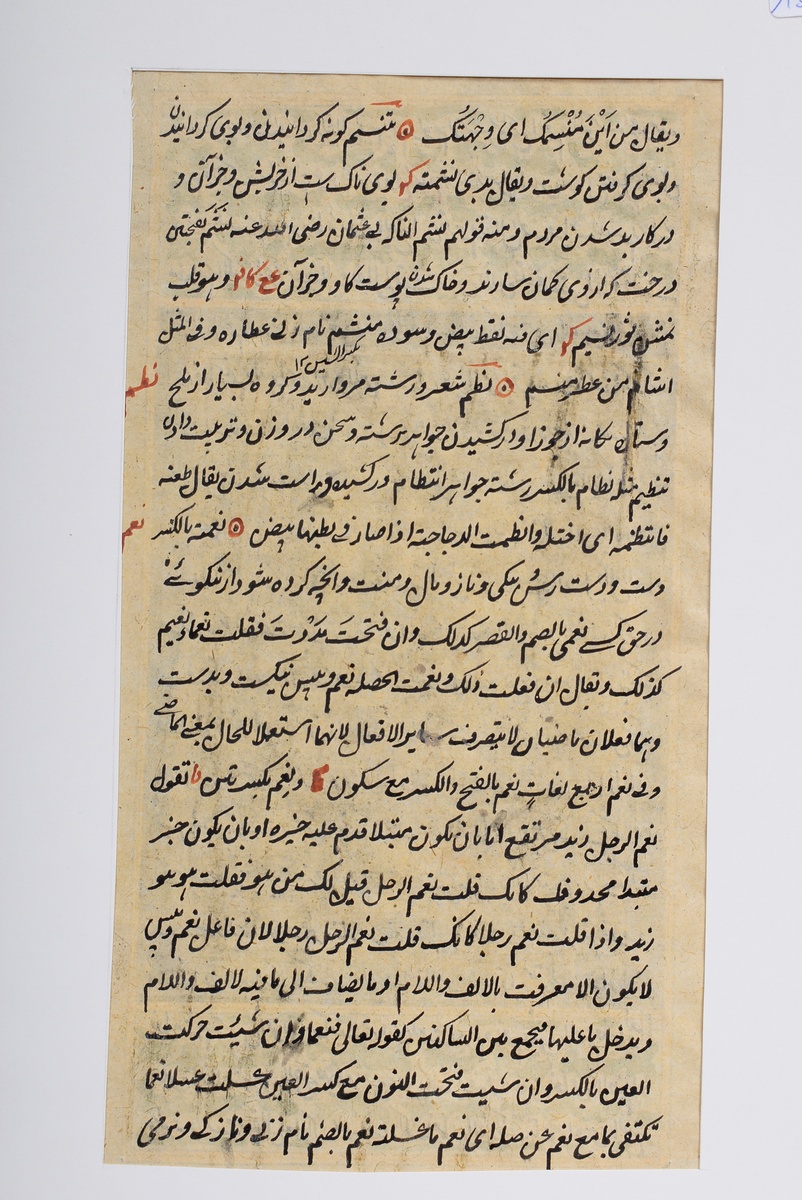 ويقال من اين منسمك اى وجهتك ۞ تنسم كونه كردانيدن وبوى كردانيدن
وبوى كرفتن كوشت ويقال بدى نشمته كه بوى ناك ست از خريش وجز آن و
در كار بد شدن مردم ومنه قولهم نشم الناس فى عثمان رضى الله عنه نشم بفتحتين
درخت كه ازوى كمان سازند وخاك شدن پوست كاو وجز آن مع كافه وهو قلب
نمش ثور نشم كه اى فيه نقط بيض وسود منشم نام زنى عطاره وفى المثل
بكسر الشين ١٢
اشام من عطر منشم ۞ نظم شعر ورشته مرواريد وكروه بسيار از ملخ
نظم
وستاره يكانه از جوزا ودر كشيدن جواهر برشته وسخن در وزن وتربيت دادن
تنظيم مثله نظام بالكسر رشته جواهر انتظام در كشيده وراست شدن يقال طعنه
فانتظمه اى اختله وانظمت الدجاجة اذا صار فى بطنها بيض ۞ نعمة بالكسر
نعم
دست ودست رس ونيكى وناز ومال ومنت وانچه كرده شود از نيكوئى
در حق كسے نعمى بالضم والقصر كذلك وان فتحت مددت فقلت نعماء ونعيم
كذلك ويقال ان فعلت ذلك ونعمت الخصلة نعم وبئس نيكست وبدست
وهما فعلان ماضيان لا يتصرف ساير الافعال لانهما استعملا للحال بمعنى الماضى
وفى نعم اربع لغات نعم بالفتح والكسر مع سكون ونعم بكسرتين تقول
نعم الرجل زيد مرتفع اما بان يكون مبتدا قدم عليه خبره او بان يكون خبر
مبتدا محذوف كانك قلت نعم الرجل قيل لك من هو فقلت هو هو
زيد واذا قلت نعم رجلا كانك قلت نعم الرجل رجلا لان فاعل نعم وبئس
لا يكون الا معرفت بالالف واللام او ما يضاف الى ما فيه الالف واللام
ويدخل ما عليها فيجمع بين الساكنين كقوله تعالى فنعما وان شئت حركت
العين بالكسر وان شئت فتحت النون مع كسر العين غسلت غسلا نعما
تكتفى بما مع نعم عن صله اى نعم ما غسلته نعم بالضم نام زنى ونازكى ونرمى